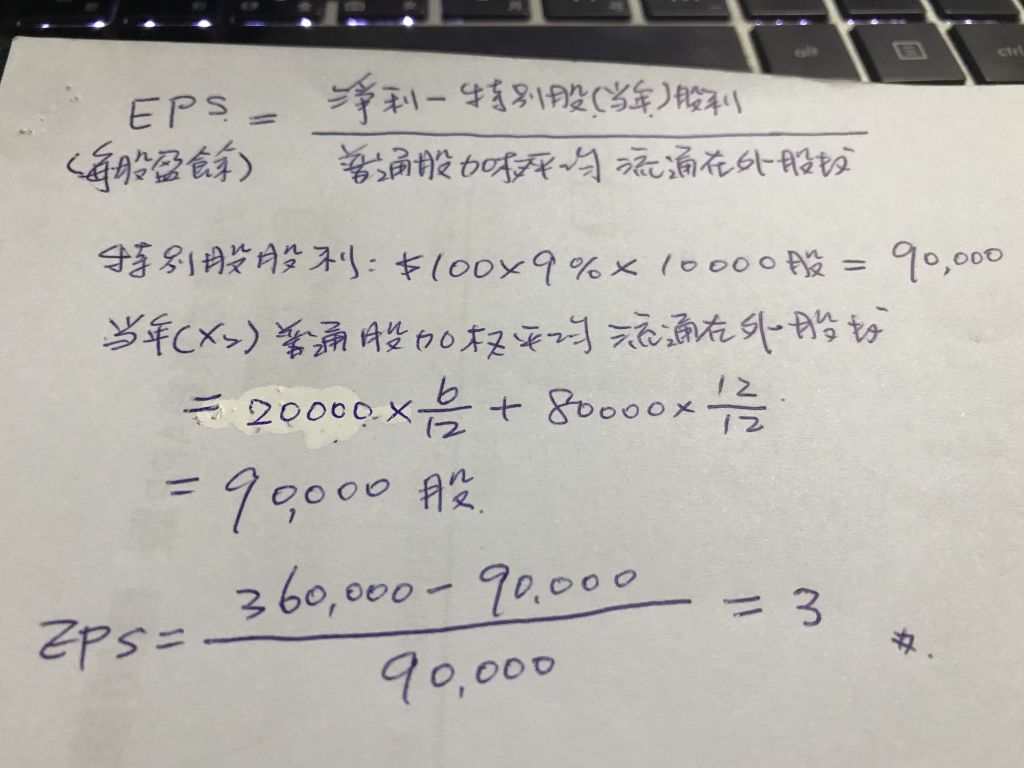 EPS = 淨利－特別股(当年)股利
(每股盈餘) 普通股加权平均流通在外股数
特別股股利: $100×9%×10000股 = 90,000
当年(X2) 普通股加权平均流通在外股数
= 20000×6/12 + 80000×12/12
= 90,000 股.
EPS = 360,000 - 90,000 / 90,000 = 3 #.
alt
ctrl